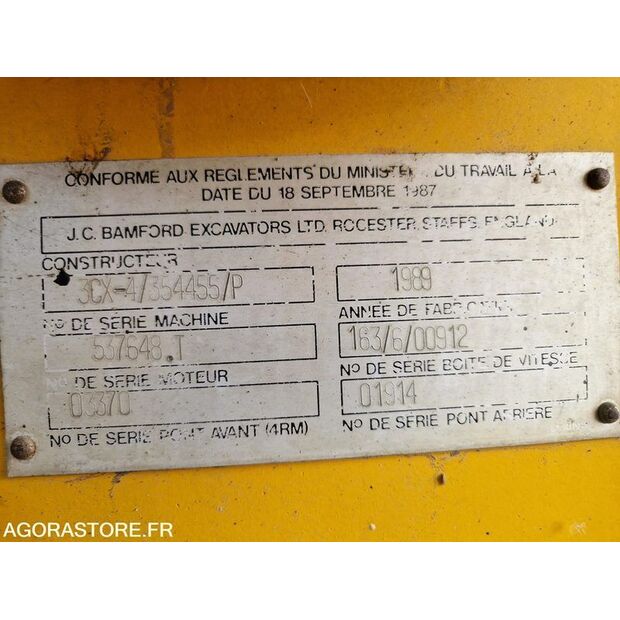 CONFORME AUX REGLEMENTS DU MINISTERE DU TRAVAIL A LA
DATE DU 18 SEPTEMBRE 1987
J.C. BAMFORD EXCAVATORS LTD. ROCESTER, STAFFS, ENGLAND
CONSTRUCTEUR
3CX-4/354455/P
1989
NO DE SERIE MACHINE
ANNÉE DE FABRICATION
537648.T
163/6/00912
NO DE SERIE MOTEUR
NO DE SERIE BOITE DE VITESSE
03370
01914
NO DE SERIE PONT AVANT (4RM)
NO DE SERIE PONT ARRIERE
AGORASTORE.FR